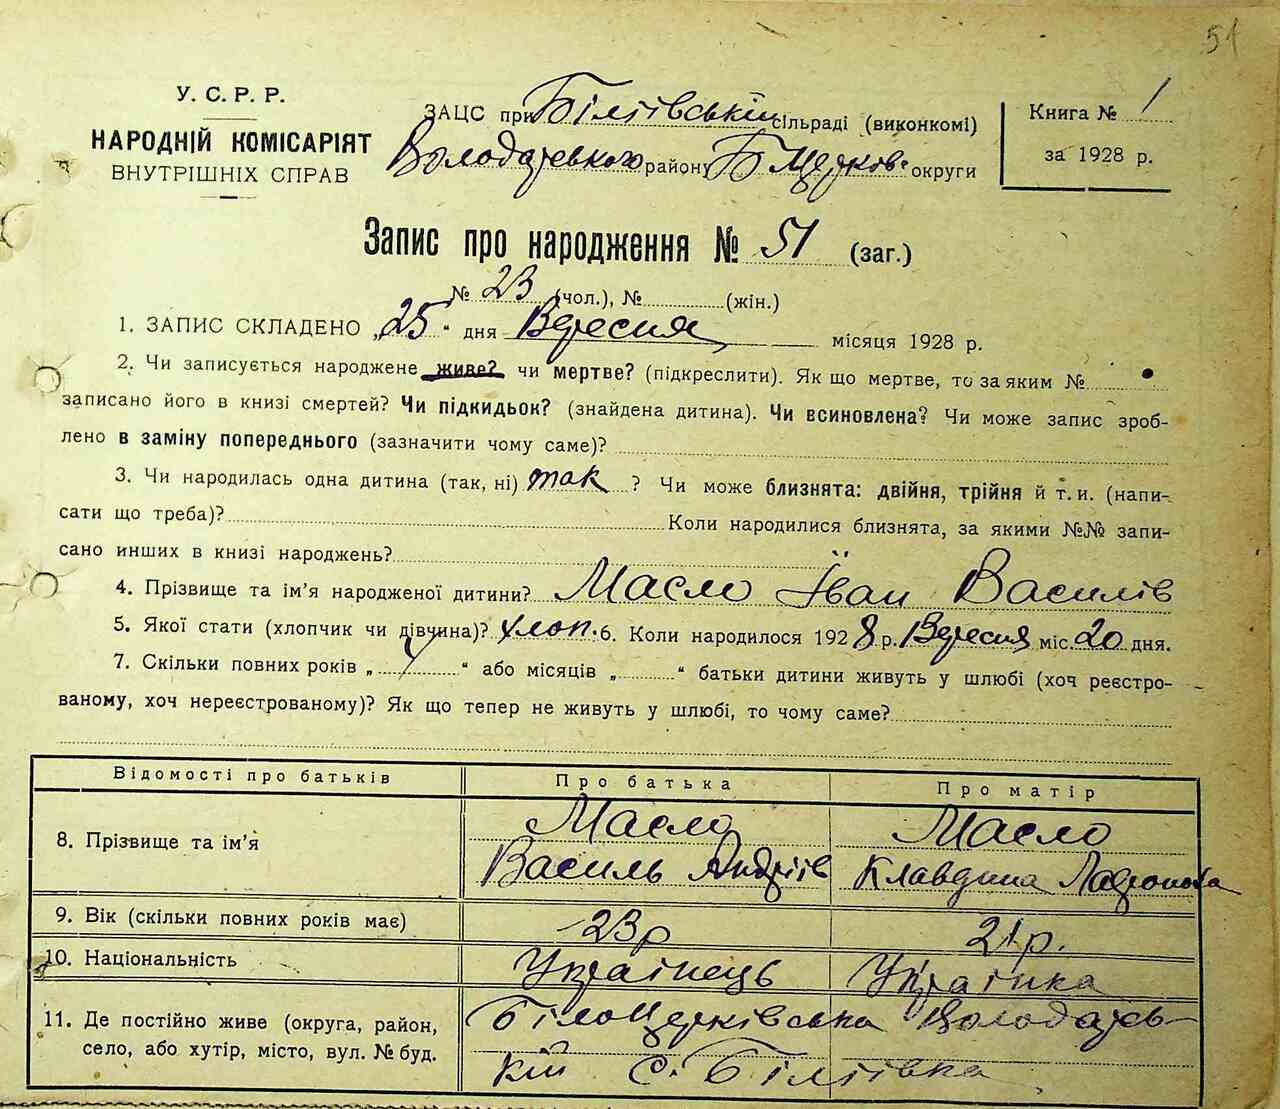 51
У. С. Р. Р.
НАРОДНІЙ КОМІСАРІЯТ
ВНУТРІШНІХ СПРАВ
ЗАЦС при Біліївській сільраді (виконкомі)
Володарського району Б Церків. округи
Книга № 1
за 1928 р.
Запис про народження № 51 (заг.)
№ 23 (чол.), № (жін.)
1. ЗАПИС СКЛАДЕНО „25“ дня Вересня місяця 1928 р.
2. Чи записується народжене живе? чи мертве? (підкреслити). Як що мертве, то за яким №
записано його в книзі смертей? Чи підкидьок? (знайдена дитина). Чи всиновлена? Чи може запис зроб-
лено в заміну попереднього (зазначити чому саме)?
3. Чи народилась одна дитина (так, ні) так ? Чи може близнята: двійня, трійня й т. и. (напи-
сати що треба)? Коли народилися близнята, за якими №№ запи-
сано инших в книзі народжень?
4. Прізвище та ім’я народженої дитини? Масло Іван Василів
5. Якої стати (хлопчик чи дівчина)? хлоп. 6. Коли народилося 1928 р. Вересня міс. 20 дня.
7. Скільки повних років „ “ або місяців „ “ батьки дитини живуть у шлюбі (хоч реєстро-
ваному, хоч нереєстрованому)? Як що тепер не живуть у шлюбі, то чому саме?
Відомості про батьків Про батька Про матір
8. Прізвище та ім’я
Масло Масло
Василь Андріїв Клавдина
9. Вік (скільки повних років має) 23 р 21 р.
10. Національність Українець Українка
11. Де постійно живе (округа, район,
село, або хутір, місто, вул. № буд.
БілоЦерківська Володарсь-
кий с. Біліївка